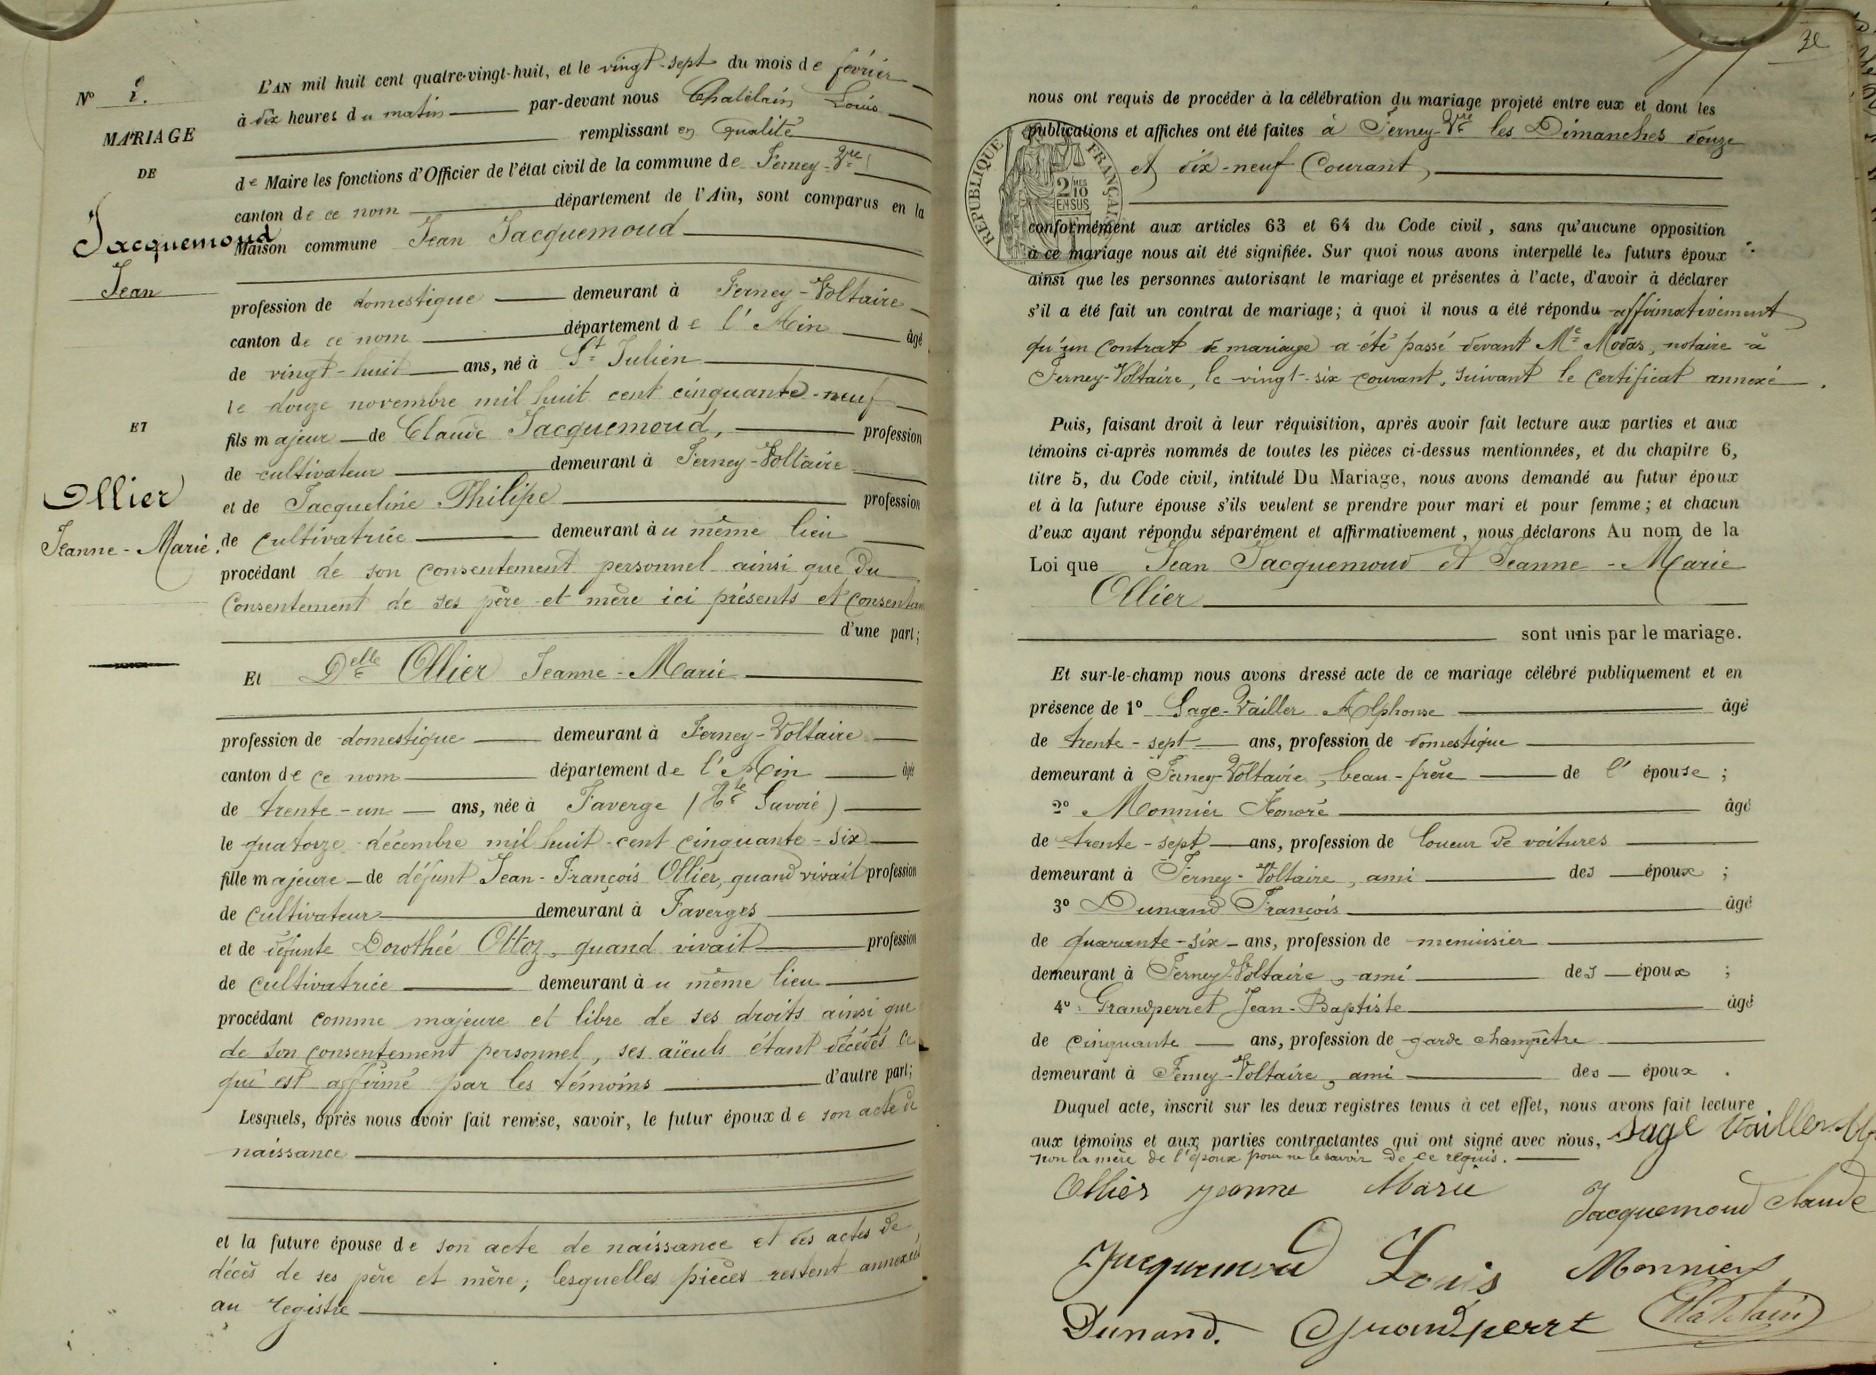 N° 2.
MARIAGE
DE
Jacquemoud
Jean
ET
Ollier
Jeanne-Marie.
L'AN mil huit cent quatre-vingt-huit, et le vingt-sept du mois de février
à dix heures du matin par-devant nous Chatelain Louis
remplissant en qualité
de Maire les fonctions d'Officier de l'état civil de la commune de Ferney-Vre
canton de ce nom département de l'Ain, sont comparus en la
Maison commune Jean Jacquemoud
profession de domestique demeurant à Ferney-Voltaire
canton de ce nom département de l'Ain âgé
de vingt-huit ans, né à St Julien
le douze novembre mil huit cent cinquante-neuf
fils majeur de Claude Jacquemoud, profession
de cultivateur demeurant à Ferney-Voltaire
et de Jacqueline Philipe profession
de cultivatrice demeurant au même lieu
procédant de son consentement personnel ainsi que du
consentement de ses père et mère ici présents et consentan
d'une part;
Et Delle Ollier Jeanne-Marie
profession de domestique demeurant à Ferney-Voltaire
canton de ce nom département de l'Ain âgée
de trente-un ans, née à Faverge (Hte Savoie)
le quatorze décembre mil huit cent cinquante-six
fille majeure de défunt Jean-François Ollier, quand vivait profession
de cultivateur demeurant à Faverges
et de défunte Dorothée Ottoz, quand vivait profession
de cultivatrice demeurant au même lieu
procédant comme majeure et libre de ses droits ainsi que
de son consentement personnel, ses aïeuls étant décédés ce
qui est affirmé par les témoins d'autre part;
Lesquels, après nous avoir fait remise, savoir, le futur époux de son acte de
naissance
et la future épouse de son acte de naissance et des actes de
décès de ses père et mère; lesquelles pièces restent annexées
au registre
nous ont requis de procéder à la célébration du mariage projeté entre eux et dont les
publications et affiches ont été faites à Ferney-Vre les Dimanches douze
et dix-neuf Courant,
RÉPUBLIQUE FRANÇAISE
2 MES 10
EN SUS
conformément aux articles 63 et 64 du Code civil, sans qu'aucune opposition
à ce mariage nous ait été signifiée. Sur quoi nous avons interpellé les futurs époux
ainsi que les personnes autorisant le mariage et présentes à l'acte, d'avoir à déclarer
s'il a été fait un contrat de mariage; à quoi il nous a été répondu affirmativement
qu'un contrat de mariage a été passé devant Me Modas, notaire à
Ferney-Voltaire, le vingt-six courant, suivant le certificat annexé.
Puis, faisant droit à leur réquisition, après avoir fait lecture aux parties et aux
témoins ci-après nommés de toutes les pièces ci-dessus mentionnées, et du chapitre 6,
titre 5, du Code civil, intitulé Du Mariage, nous avons demandé au futur époux
et à la future épouse s'ils veulent se prendre pour mari et pour femme; et chacun
d'eux ayant répondu séparément et affirmativement, nous déclarons Au nom de la
Loi que Jean Jacquemoud et Jeanne-Marie
Ollier
sont unis par le mariage.
Et sur-le-champ nous avons dressé acte de ce mariage célébré publiquement et en
présence de 1° Sage-Vailler Alphonse âgé
de trente-sept ans, profession de domestique
demeurant à Ferney-Voltaire, beau-frère de l'épouse;
2° Monnier Honoré âgé
de trente-sept ans, profession de loueur de voitures
demeurant à Ferney-Voltaire, ami des époux;
3° Dunand François âgé
de quarante-six ans, profession de menuisier
demeurant à Ferney-Voltaire, ami des époux;
4° Grandperret Jean-Baptiste âgé
de cinquante ans, profession de garde champêtre
demeurant à Ferney-Voltaire, ami des époux.
Duquel acte, inscrit sur les deux registres tenus à cet effet, nous avons fait lecture
aux témoins et aux parties contractantes qui ont signé avec nous, Sage Vailler
non la mère de l'époux pour ne le savoir de ce requis.
Ollier Jeanne Marie
Jacquemoud Claude
Jacquemoud Louis Monnier
Dunand. Grandperret Chatelain